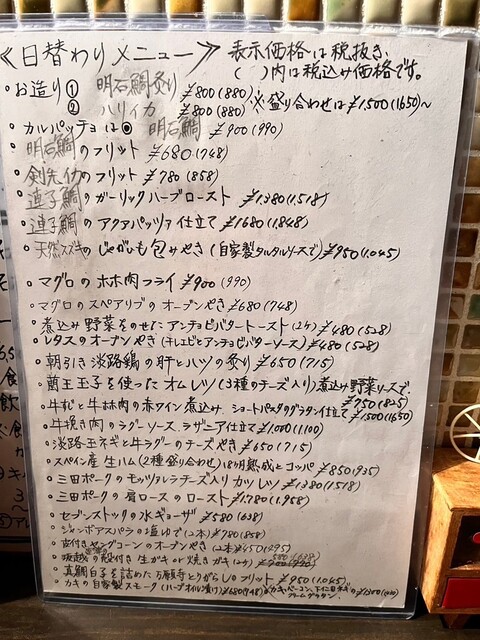 ≪日替わりメニュー≫ 表示価格は税抜き、
( )内は税込み価格です。
・お造り① 明石鯛炙り ¥800(880)
② ハリイカ ¥800(880) ※盛り合わせは¥1,500(1650)~
・カルパッチョは◉ 明石鯛 ¥900(990)
・明石鯛のフリット ¥680(748)
・剣先イカのフリット ¥780(858)
・連子鯛のガーリックハーブロースト ¥1,380(1,518)
・連子鯛のアクアパッツァ仕立て ¥1680(1.848)
・天然スズキのじゃがいも包みやき(自家製タルタルソースで)¥950(1.045)
・マグロのホホ肉フライ ¥900(990)
・マグロのスペアリブのオーブンやき ¥680(748)
・煮込み野菜をのせたアンチョビバタートースト(2ヶ)¥480(528)
・レタスのオーブンやき(アンチョビバターソース)¥480(528)
・朝引き淡路鶏の肝とハツの炙り ¥650(715)
・蘭王玉子を使ったオムレツ(3種のチーズ入り)煮込み野菜ソースで、¥750(825)
・牛すじと牛ホホ肉の赤ワイン煮込み、ショートパスタのグラタン仕立て ¥1500(1650)
・牛挽き肉のラグーソース、ラザニア仕立て ¥1000(1,100)
・淡路玉ネギと牛ラグーのチーズやき ¥650(715)
・スペイン産生ハム(2種盛り合わせ)18ヶ月熟成とコッパ ¥850(935)
・三田ポークのモッツァレラチーズ入りカツレツ ¥1380(1518)
・三田ポークの肩ロースのロースト ¥1,780(1.958)
・セブンストックの水ギョーザ ¥580(638)
・ジャンボアスパラの塩ゆで(2本)¥780(858)
・皮付きヤングコーンのオーブンやき(2本)¥450(495)
・殻付き生ガキor焼きガキ(2ヶ)
・真鯛白子を詰めた万願寺とうがらしのフリット ¥950(1.045)
・カキの自家製スモーク(ハーブオイル漬け)¥680(748)